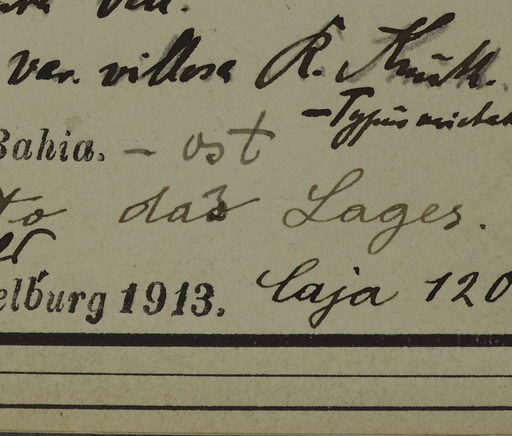 var. villosa R. Knuth.
– Typus
Bahia. – ost
to das Lages.
elburg 1913. Caja 120